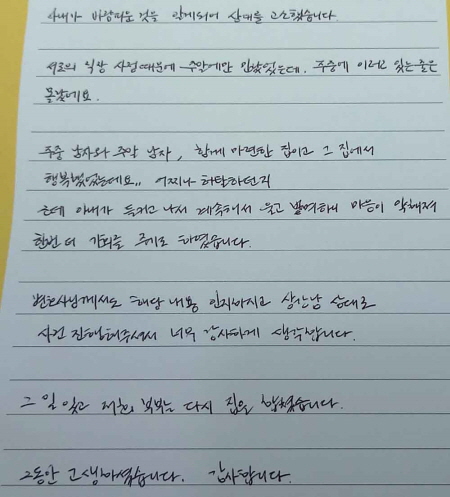 아내가 바람피운 것을 알게되어 상대를 고소했습니다
서로의 직장 사정때문에 주말에만 만났었는데. 주중에 이러고 있는줄은
몰랐네요.
주중 남자와 주말 남자, 함께 마련한 집이고 그 집에서
행복했었는데요.. 어찌나 허탈하던지
근데 아내가 들키고 나서 계속해서 울고 빌며하니 마음이 약해져
한번 더 기회를 주기로 하였습니다.
변호사님께서도 해당 내용 인지하시고 상간남 상대로
사건 진행해주셔서 너무 감사하게 생각합니다.
그 일 있고 저희 부부는 다시 집을 합쳤습니다.
그동안 고생하셨습니다. 감사합니다.